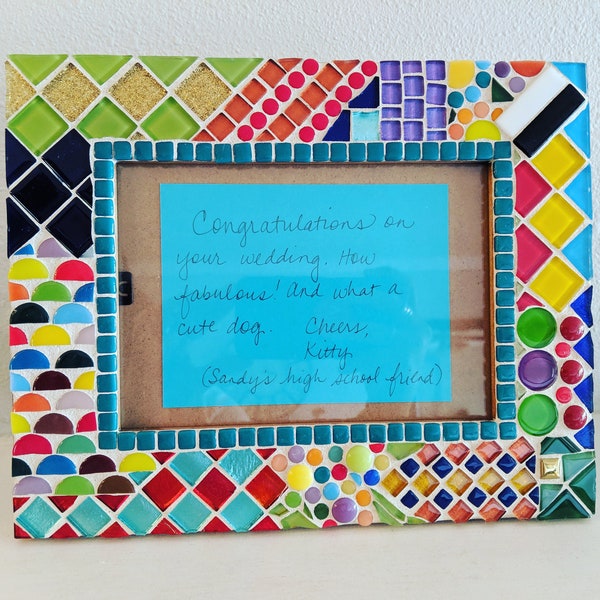 Congratulations on
your wedding. How
fabulous! And what a
cute dog. Cheers,
Kitty
(Sandy's high school friend)